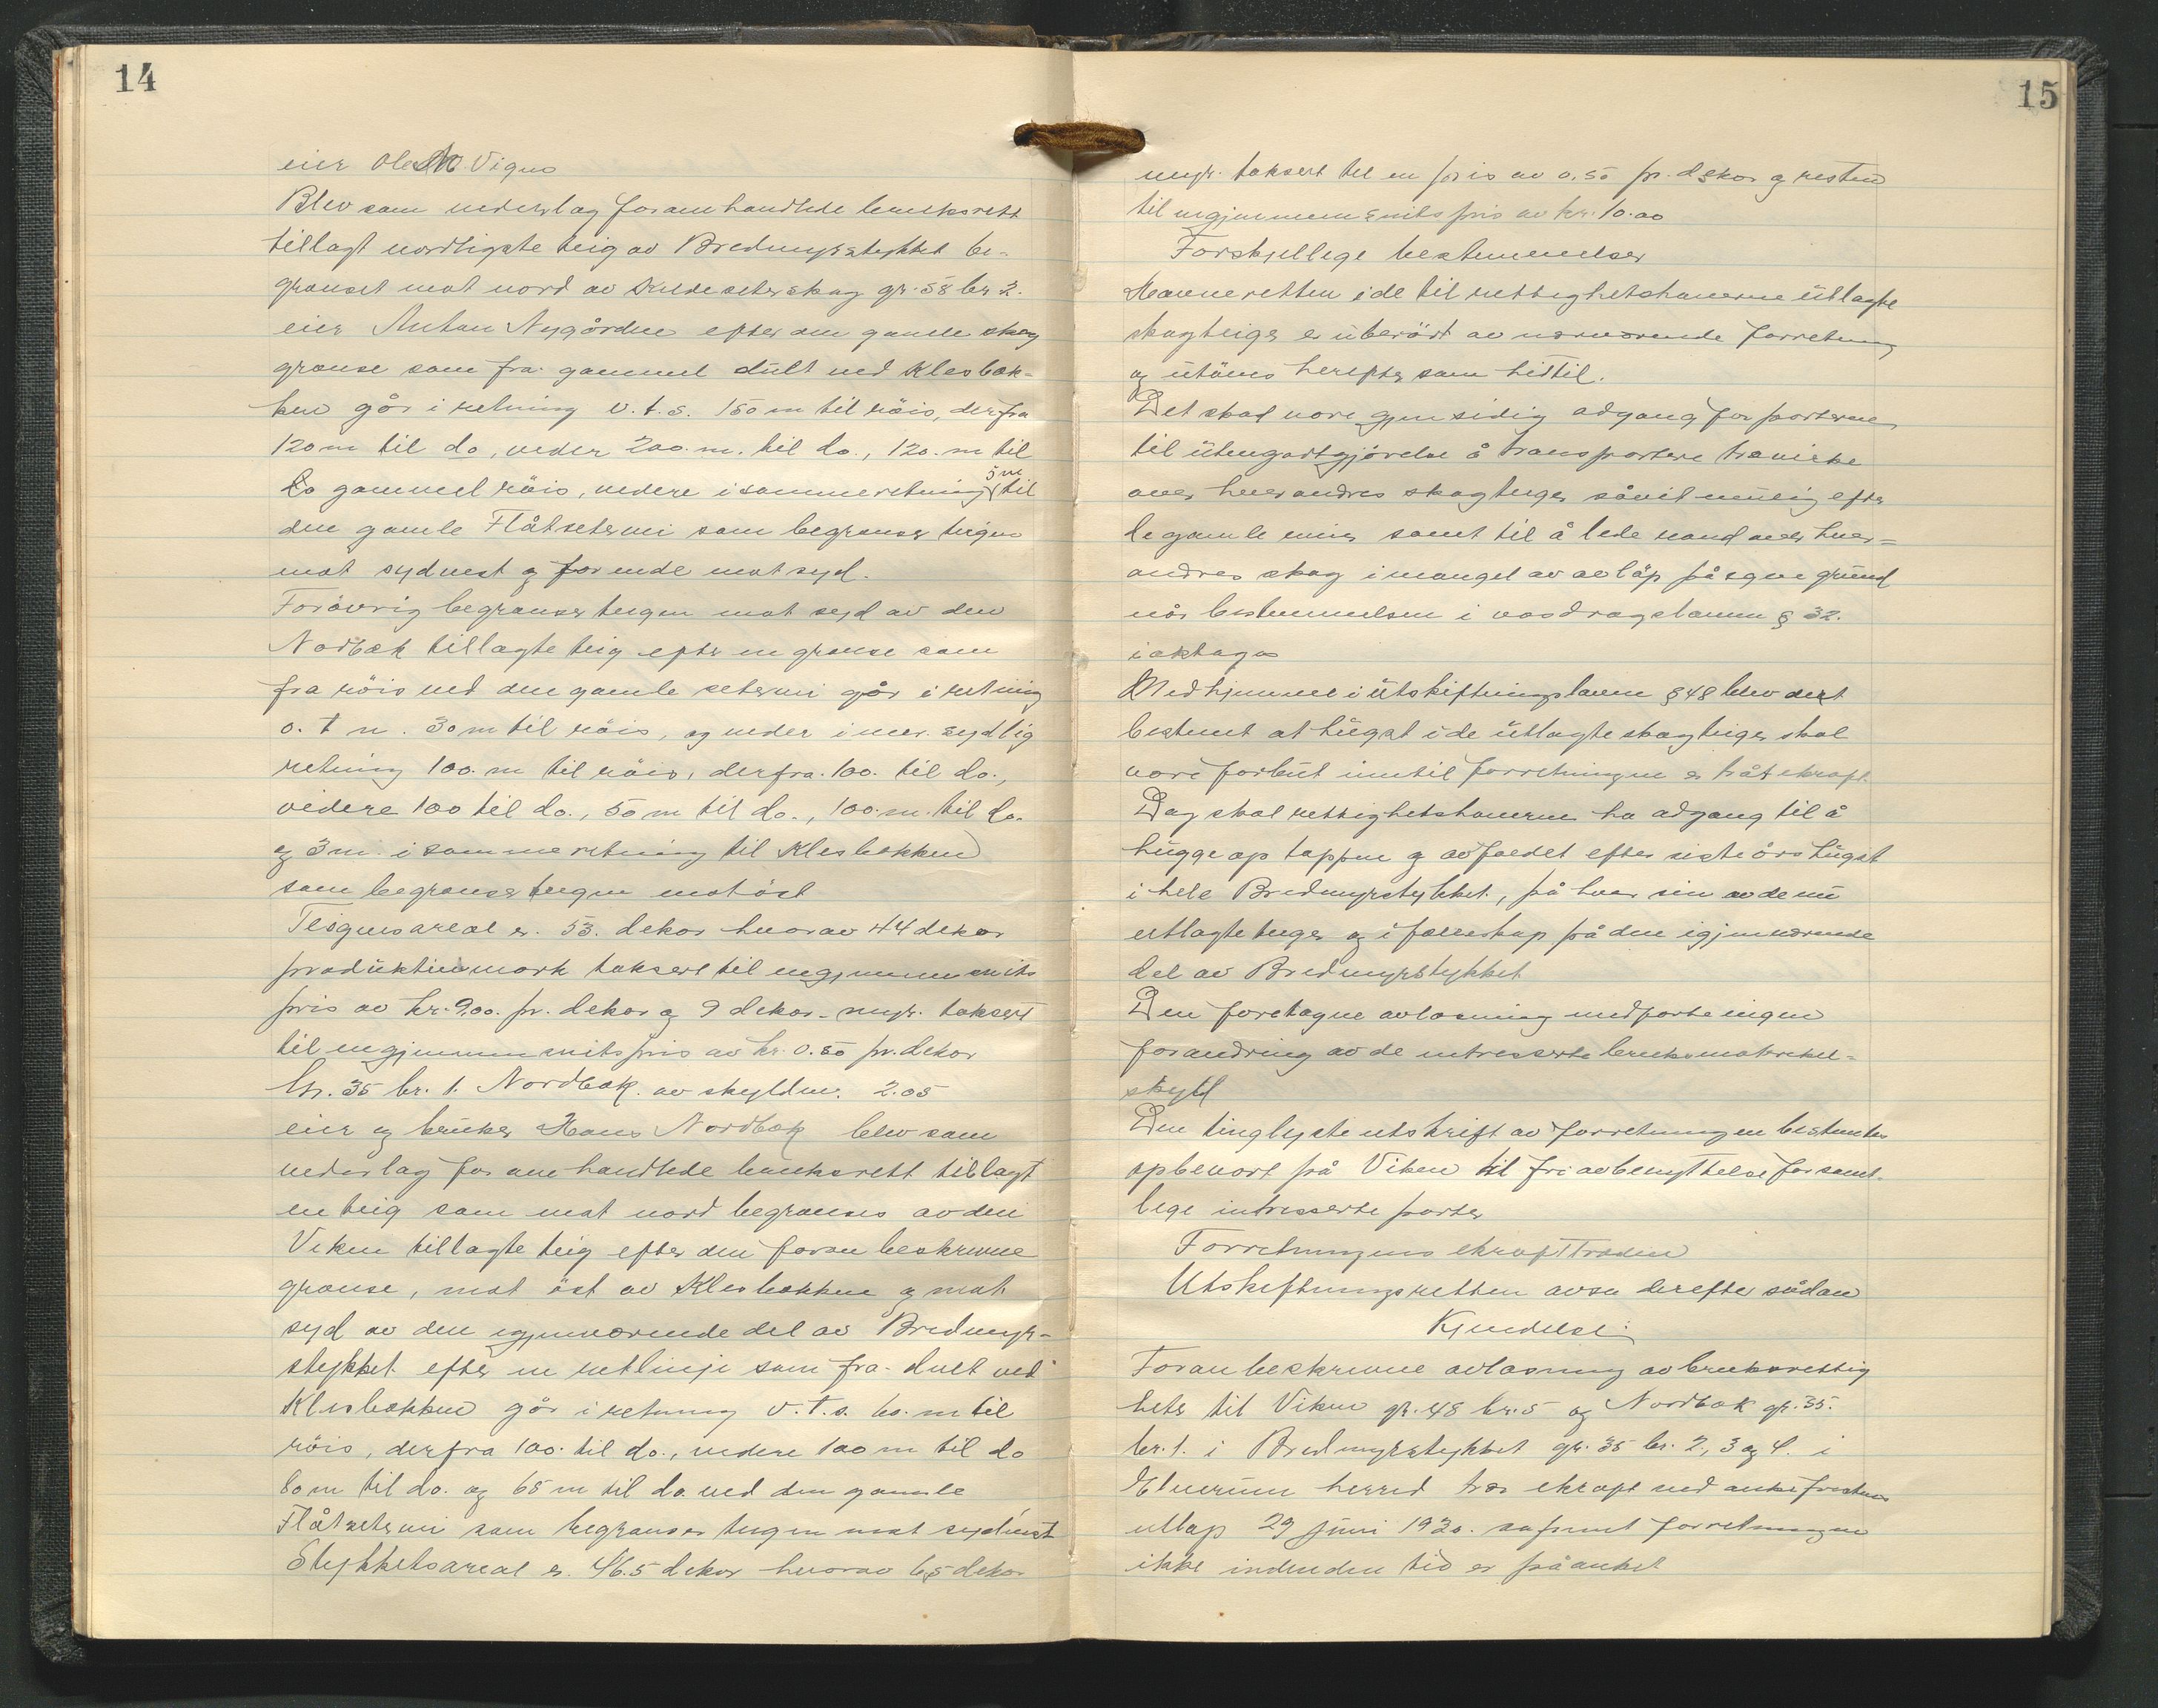 14
eier Ole M. Vigus
Blev som vederlag foramhandlede bruksrett
tillagt nordligste teig av Bredmyrstykket be-
grænset mot nord av Kildesæterskog gr. 58 br 2.
eier Anton Nygården efter den gamle skog
grænse som fra gammel dult ved Klesbæk-
ken går i retning v.t.s. 150 m til röis, derfra
120 m til do, videre 200. m. til do., 120. m til
do gammel röis, videre i samme retning 5 m til
den gamle Flåtsetervei som begrænser teigen
mot sydvest og for ende mot syd.
Forövrig begrænses teigen mot syd av den
Nordbæk tillagte teig efter en grænse som
fra röis ved den gamle setervei går i retning
o. t n. 30 m til röis, og videre i mer sydlig
retning 100. m til röis, derfra. 100. til do.,
videre 100 til do., 50 m til do., 100. m. til do.
og 3 m. i samme retning til Klesbækken
som begrænser teigen mot öst
Teigens areal er. 53. dekar hvorav 44 dekar
produktivmark taksert til en gjennemsnits
pris av kr. 9,00. pr. dekar og 9 dekar. myr. taksert
til en gjennemsnitspris av kr. 0.50 pr. dekar
Gr. 35 br. 1. Nordbæk. av skyldm. 2.05
eier og bruker Hans Nordbæk blev som
vederlag for omhandlede bruksrett tillagt
en teig som mot nord begrænses av den
Viken tillagte teig efter den foran beskrevne
grænse, mot öst av Klesbækken og mot
syd av den igjenværende del av Bredmyr-
stykket efter en retlinje som fra dult ved
Klesbækken går i retning v.t.s. 60. m til
röis, derfra 100. til do., videre 100 m til do
80 m til do. og 65 m til do. ved den gamle
Flåtsetervei som begrænser teigen mot sydvest
Stykkets areal er. 46.5 dekar hvorav 6,5 dekar
15
myr. taksert til en pris av 0,50 pr. dekar og resten
til en gjennemsnits pris av kr. 10.00
Forskjellige bestemmelser
Havneretten i de til rettighetshaverne utlagte
skogteiger er uberört av nærværende forretning
og utöves herefter som hittil.
Det skal være gjensidig adgang for parterne
til utengodtgjörelse å transportere travirke
over hverandres skogteiger såvit mulig efter
de gamle veier samt til å lede vand over hver-
andres skog i mangel av avlöp på egne grund
når bestemmelsen i vasdragsloven § 32.
iakttages
Med hjemmel i utskiftningsloven § 48 blev det
bestemt at hugst i de utlagte skogteiger skal
være forbut inntil forretningen er tråt i kraft.
Dog skal rettighetshaverne ha adgang til å
hugge op toppene og avfaldet efter siste års hugst
i hele Bredmyrstykket, på hver sin av de nu
utlagte teiger og i fælleskap på den igjenværende
del av Bredmyrstykket
Den foretagne avlösning medförte ingen
forandring av de intresserte bruks matrikel-
skyld
Den tinglyste utskrift av forretningen bestemtes
opbevart på Viken til fri avbenyttelse for samt-
lige intresserte parter
Forretningens ikrafttræden
Utskiftningsretten avsa derefter sådan
Kjendelse:
Foran beskrevne avlösning av bruksrettig
heter til Viken gr. 48 br. 5 og Nordbæk gr. 35.
br. 1. i Bredmyrstykket gr. 35 br. 2, 3 og 4. i
Elverum herred trær ikraft ved ankefristens
utlöp 29 juni 1930. såfremt forretningen
ikke inden den tid er påanket